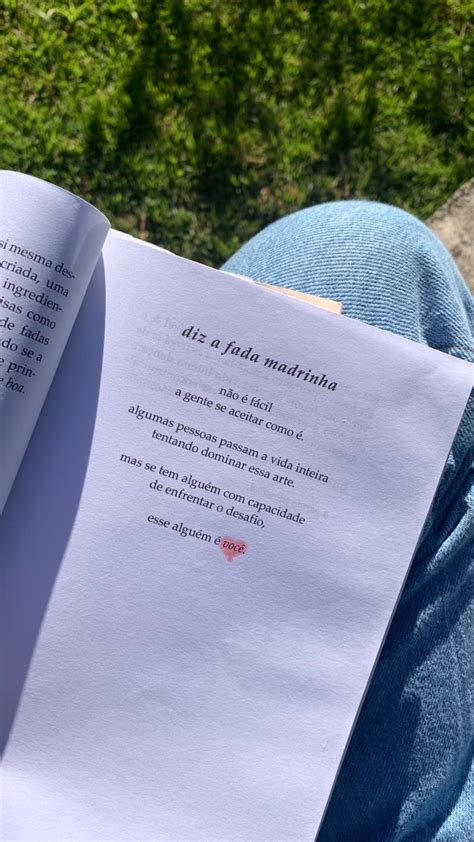 si mesma des-
criada, uma
ingredien-
isas como
de fadas
do se a
e prin-
e boa.
diz a fada madrinha
não é fácil
a gente se aceitar como é.
algumas pessoas passam a vida inteira
tentando dominar essa arte.
mas se tem alguém com capacidade
de enfrentar o desafio,
esse alguém é você.